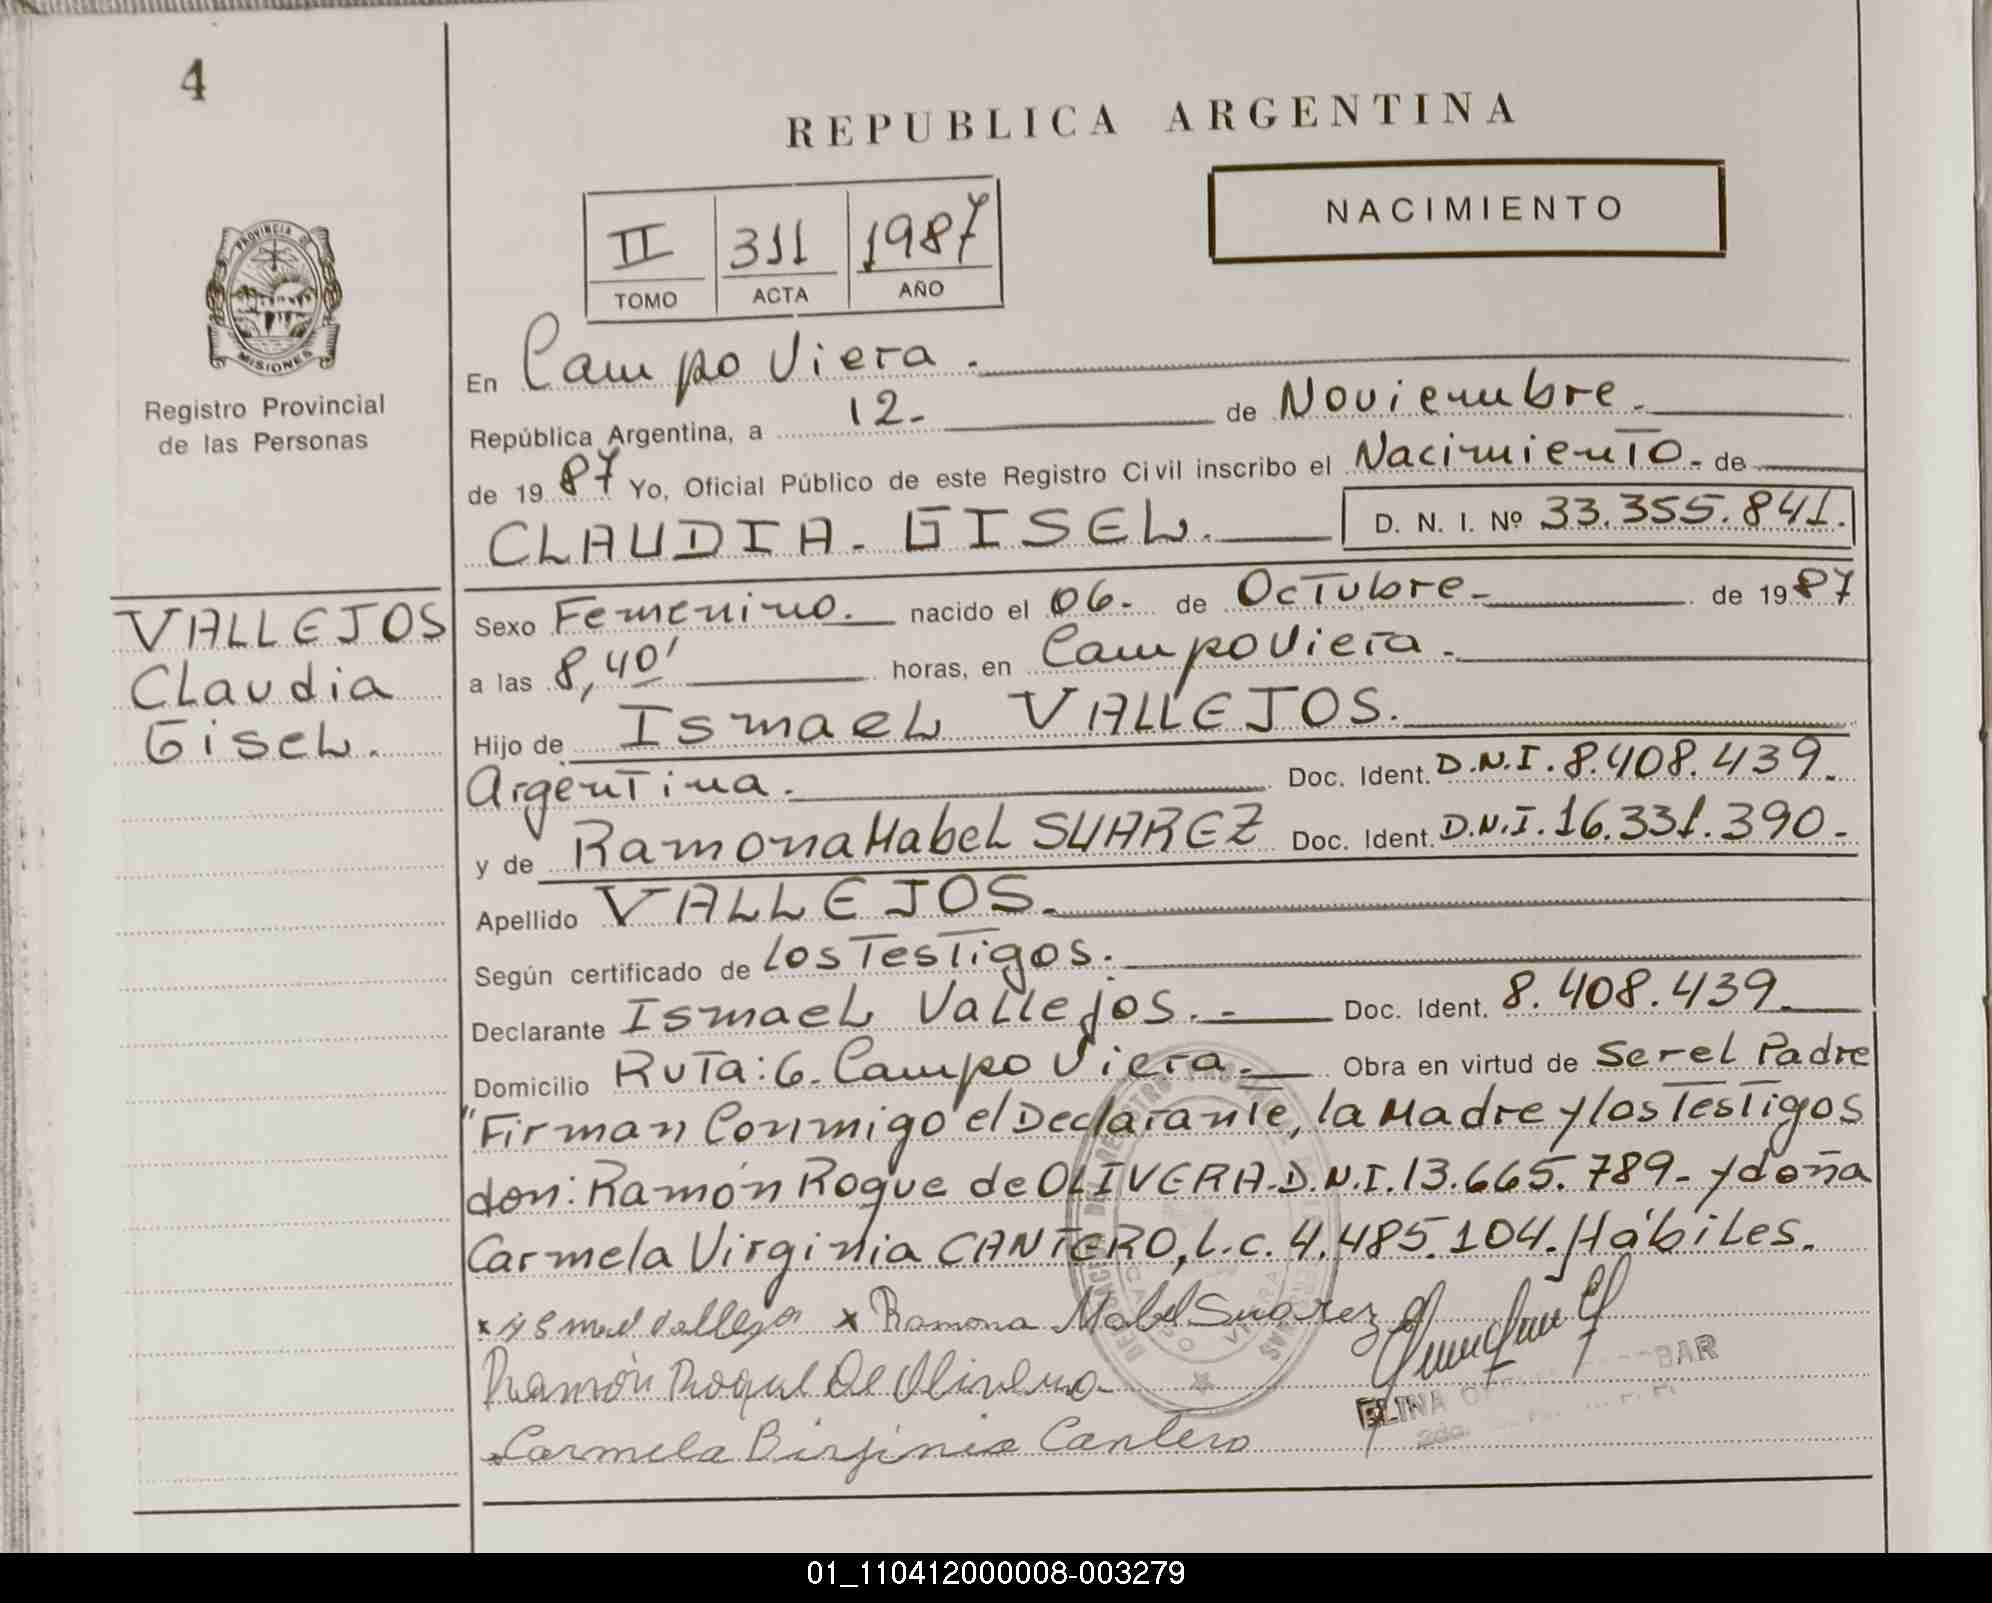 4
REPUBLICA ARGENTINA
NACIMIENTO
II 311 1987
TOMO ACTA AÑO
PROVINCIA DE
MISIONES
Registro Provincial
de las Personas
En Campo Viera.
República Argentina, a 12- de Noviembre.
de 1987 Yo, Oficial Público de este Registro Civil inscribo el Nacimiento - de
CLAUDIA - GISEL. D. N. I. Nº 33.355.841.
VALLEJOS
Claudia
Gisel.
Sexo Femenino. nacido el 06- de Octubre - de 1987
a las 8,40' horas, en Campo Viera -
Hijo de Ismael VALLEJOS.
Argentina. Doc. Ident. D.N.I. 8.408.439.
y de Ramona Mabel SUAREZ Doc. Ident. D.N.I. 16.331.390-
Apellido VALLEJOS.
Según certificado de los Testigos.
Declarante Ismael Vallejos. - Doc. Ident. 8.408.439.
Domicilio Ruta: 6. Campo Viera. Obra en virtud de Ser el Padre
"Firman Conmigo el Declarante, la Madre y los Testigos
don: Ramón Roque de OLIVERA - D.N.I. 13.665.789 - y doña
Carmela Virginia CANTERO, L.C. 4.485.104. Hábiles.
x Ismael Vallejos x Ramona Mabel Suarez
Ramón Roque De Olivera
ELINA BAR
Carmela Birjinia Cantero
01_110412000008-003279